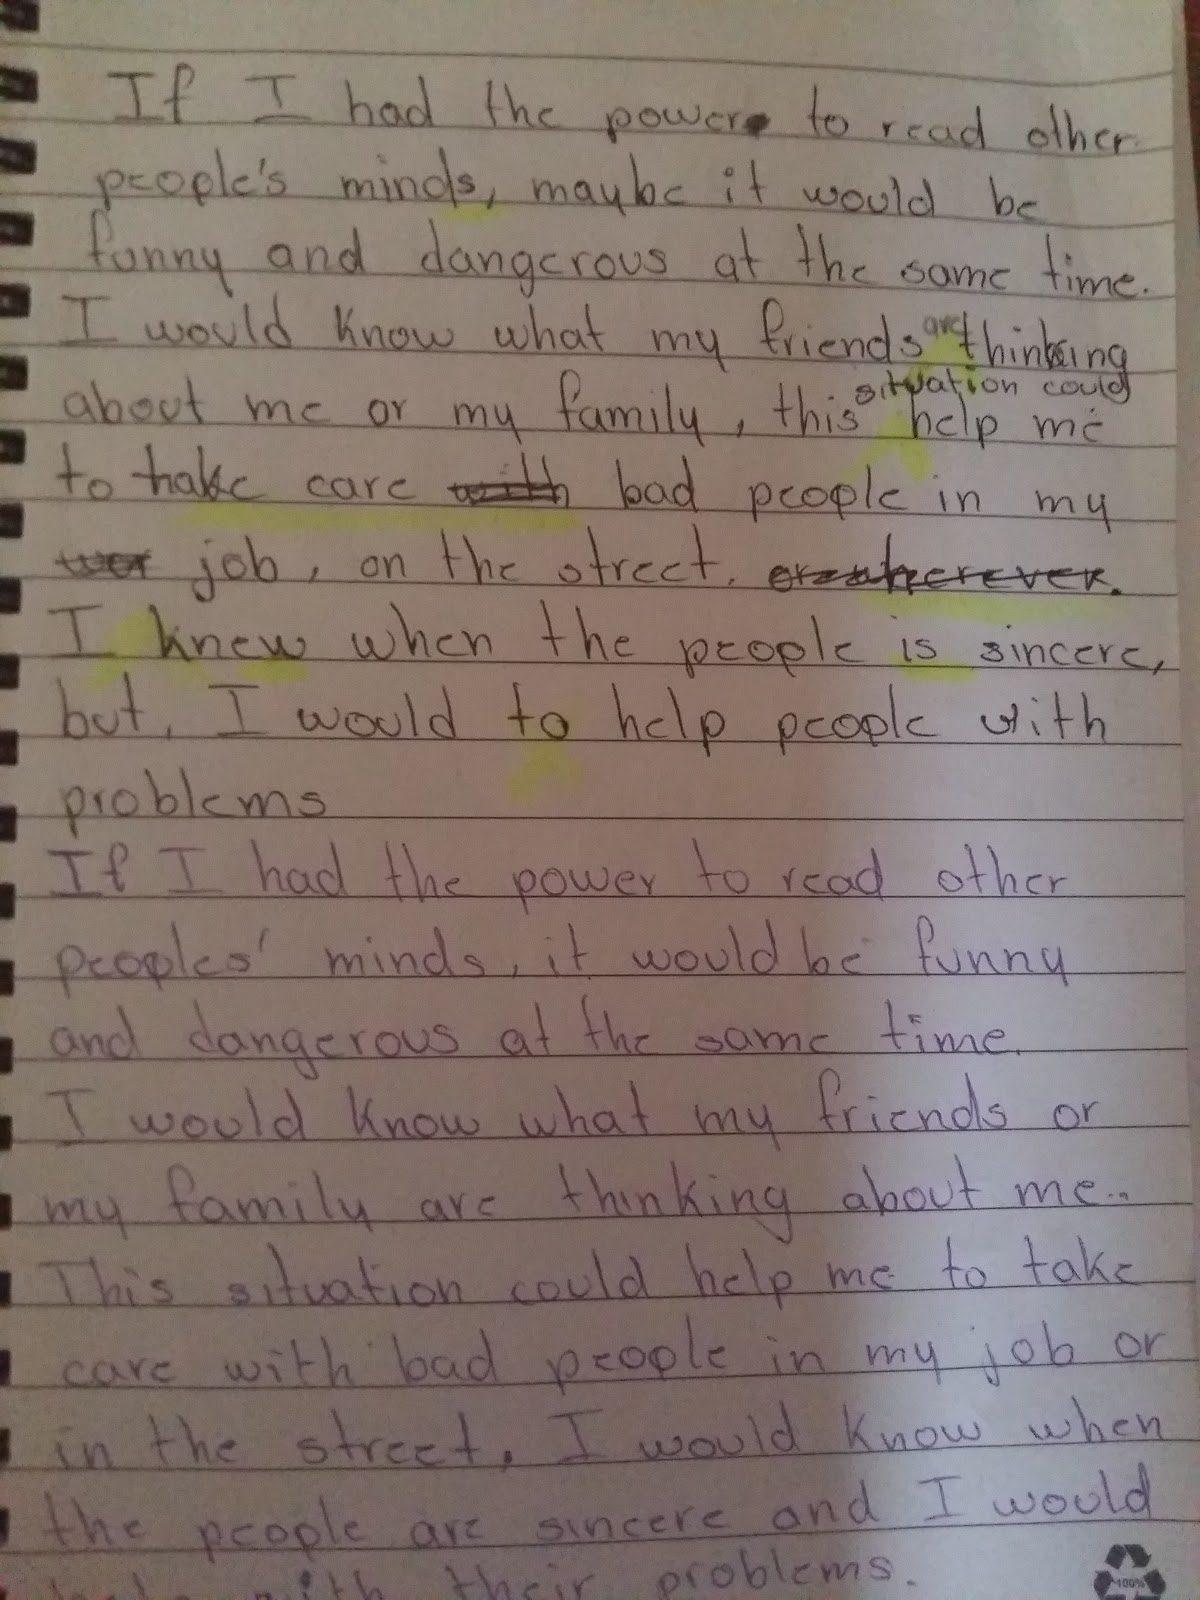 If I had the power to read other
people's minds, maybe it would be
funny and dangerous at the same time.
I would know what my friends are thinking
about me or my family, this situation could help me
to take care with bad people in my
job, on the street. or wherever.
I knew when the people is sincere,
but, I would to help people with
problems
If I had the power to read other
peoples' minds, it would be funny
and dangerous at the same time.
I would know what my friends or
my family are thinking about me..
This situation could help me to take
care with bad people in my job or
in the street. I would know when
the people are sincere and I would
with their problems.
100%